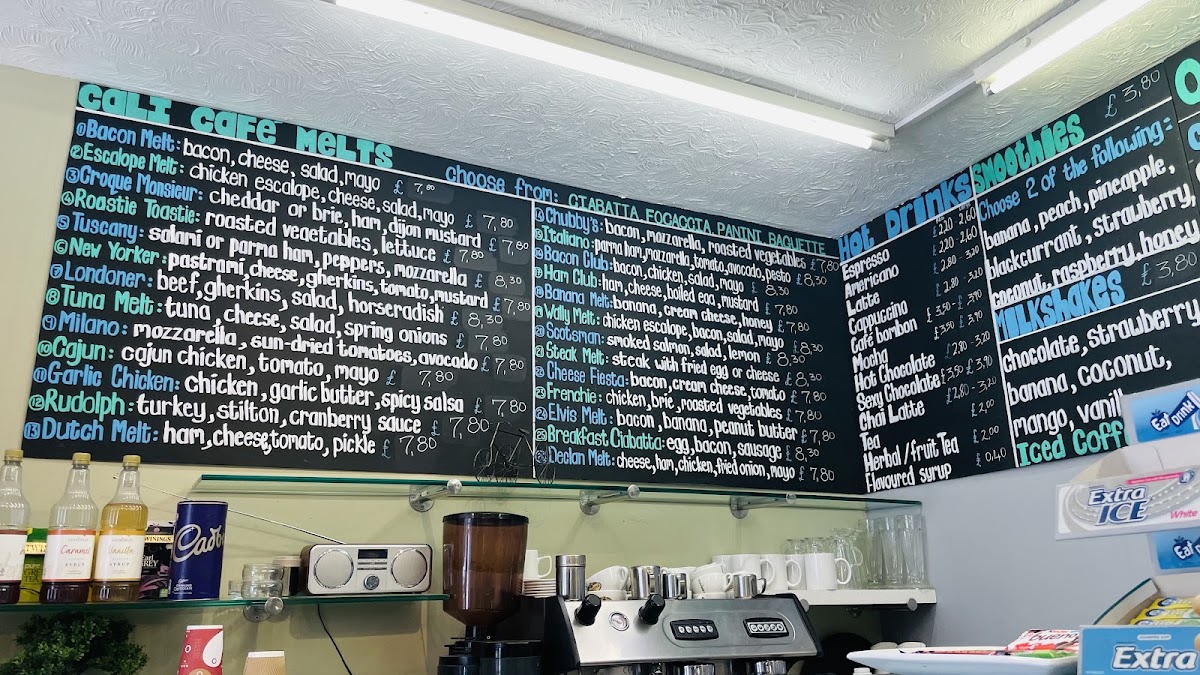 CALI CAFE MELTS
choose from: CIABATTA FOCACCIA PANINI BAGUETTE
① Bacon Melt: bacon, cheese, salad, mayo £ 7,80
② Escalope Melt: chicken escalope, cheese, salad, mayo £ 7,80
③ Croque Monsieur: cheddar or brie, ham, dijon mustard £ 7,80
④ Roastie Toastie: roasted vegetables, lettuce £ 7,80
⑤ Tuscany: salami or parma ham, peppers, mozzarella £ 8,30
⑥ New Yorker: pastrami, cheese, gherkins, tomato, mustard £ 7,80
⑦ Londoner: beef, gherkins, salad, horseradish £ 8,30
⑧ Tuna Melt: tuna, cheese, salad, spring onions £ 7,80
⑨ Milano: mozzarella, sun-dried tomatoes, avocado £ 7,80
⑩ Cajun: cajun chicken, tomato, mayo £ 7,80
⑪ Garlic Chicken: chicken, garlic butter, spicy salsa £ 7,80
⑫ Rudolph: turkey, stilton, cranberry sauce £ 7,80
⑬ Dutch Melt: ham, cheese, tomato, pickle £ 7,80
⑭ Chubby's: bacon, mozzarella, roasted vegetables £ 7,80
⑮ Italiano: parma ham, mozzarella, tomato, avocado, pesto £ 8,30
⑯ Bacon Club: bacon, chicken, salad, mayo £ 8,30
⑰ Ham Club: ham, cheese, boiled egg, mustard £ 7,80
⑱ Banana Melt: banana, cream cheese, honey £ 7,80
⑲ Wally Melt: chicken escalope, bacon, salad, mayo £ 8,30
⑳ Scotsman: smoked salmon, salad, lemon £ 8,30
㉑ Steak Melt: steak with fried egg or cheese £ 8,30
㉒ Cheese Fiesta: bacon, cream cheese, tomato £ 7,80
㉓ Frenchie: chicken, brie, roasted vegetables £ 7,80
㉔ Elvis Melt: bacon, banana, peanut butter £ 7,80
㉕ Breakfast Ciabatta: egg, bacon, sausage £ 8,30
㉖ Declan Melt: cheese, ham, chicken, fried onion, mayo £ 7,80
Hot Drinks
Espresso
Americano
Latte
Cappuccino
Café bonbon
Mocha
Hot Chocolate
Sexy Chocolate
Chai Latte
Tea
Herbal / fruit Tea
Flavoured syrup
£ 2,20 - 2,60
£ 2,20 - 2,60
£ 2,80 - 3,20
£ 3,50 - £ 3,90
£ 3,50 £ 3,90
£ 2,80 - 3,20
£ 3,50 £ 3,90
£ 2,80 - 3,20
£ 2,00
£ 2,00
£ 0,40
Smoothies £ 3,80
Choose 2 of the following:
banana, peach, pineapple,
blackcurrant, strawberry,
coconut, raspberry, honey
Milkshakes £ 3,80
chocolate, strawberry
banana, coconut,
mango,
Iced
Caramel
SYRUP
Vanilla
SYRUP
TWININGS
Earl
Grey
Cadb
Extra
ICE
White
Eat Drink
Eat Drink
bueno
Extra